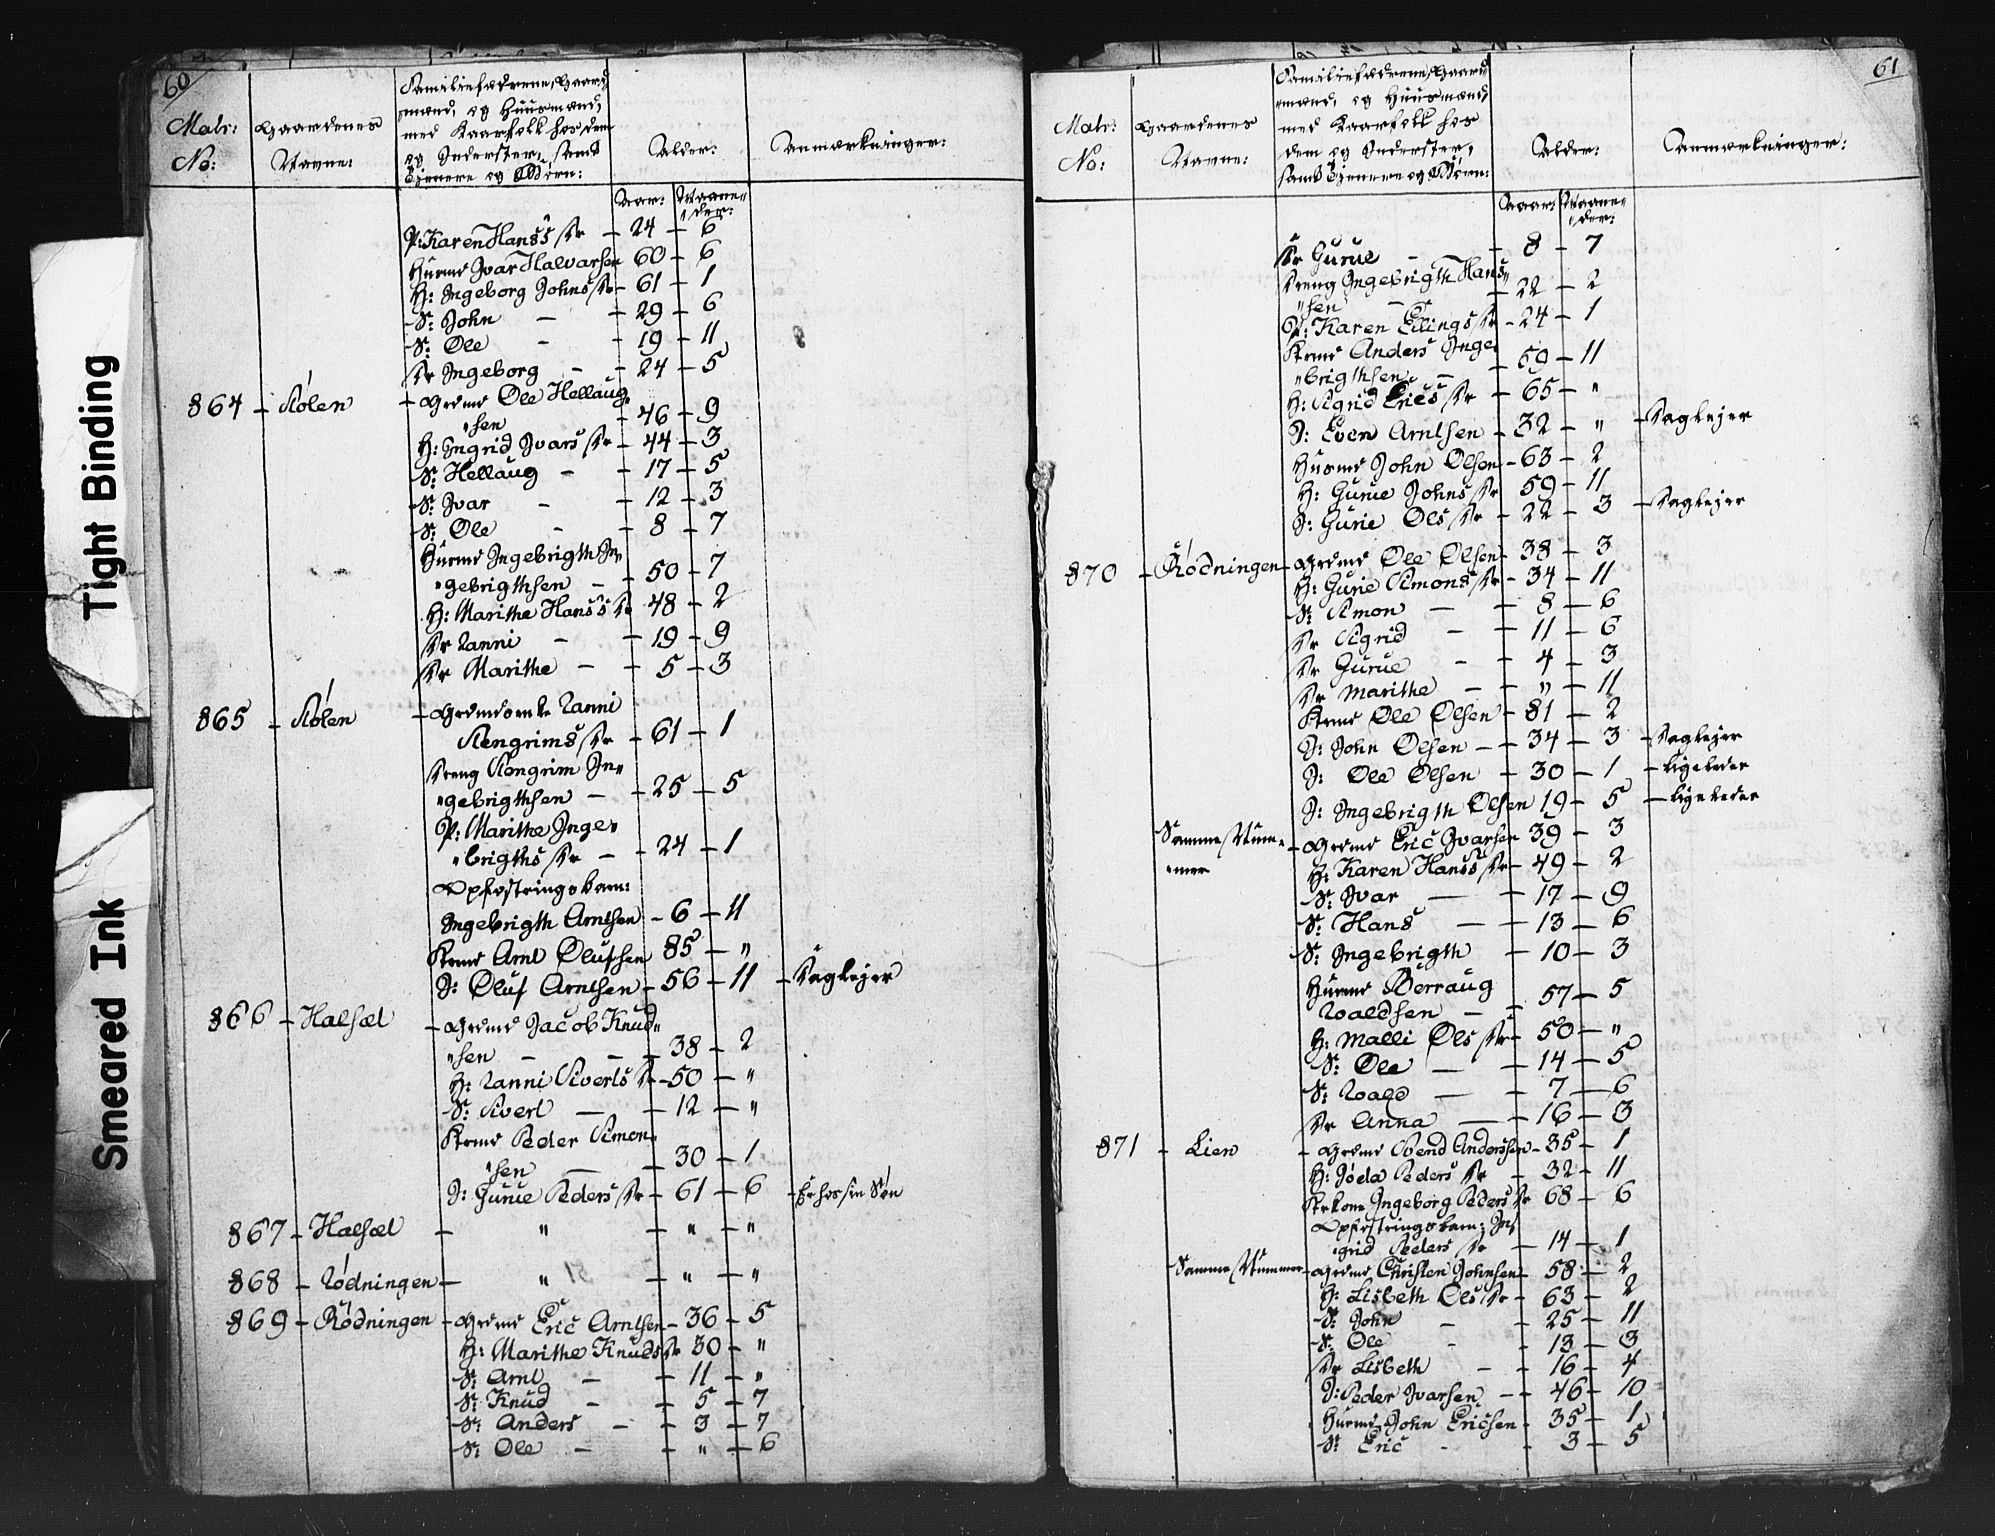 60
Matr: No:
Gaardenes Navne:
Familiefædrene, Gaard
mænd, og Huusmænd,
med Kaarfolk hos dem
og Inderster, samt
Tjenere og Børn:
Alder:
Anmærkninger:
Aar: Maane„
„der:
P: Karen Hanss Dr – 24 – 6
Husmd Ivar Halvarsen 60 – 6
H: Ingeborg Johns Dr – 61 – 1
S: John – – 29 – 6
S: Ole – – 19 – 11
Dr Ingeborg – – 24 – 5
864 – Stølen – Grdmd Ole Hellaug„
„sen – 46 – 9
H: Ingrid Ivars Dr – 44 – 3
S: Hellaug – – 17 – 5
S: Ivar – – 12 – 3
S: Ole – – 8 – 7
Husmd Ingebrigth In„
„gebrigthsen – – 50 – 7
H: Marithe Hanss Dr 48 – 2
Dr Ranni – – 19 – 9
Dr Marithe – – 5 – 3
865 – Stølen – Grdmdsenke Ranni
Stengrims Dr – 61 – 1
Dreng Stengrim In„
„gebrigthsen – – 25 – 5
P: Marithe Inge„
„brigths Dr – – 24 – 1
Opfostringsbarn:
Ingebrigth Arntsen – 6 – 11
Krmd Arnt Olufsen 85 – „
I: Oluf Arntsen – 56 – 11 – Daglejer
866 – Halsæt – Grdmd Jacob Knud„
„sen – – – 38 – 2
H: Ranni Siverts Dr – 50 – „
S: Sivert – – 12 – „
Krmd Peder Simon„
„sen – – 30 – 1
I: Gurue Peders Dr – 61 – 6 – Er hos sin Søn
867 – Halsæt – „ – „ – „
868 – Rødningen – „ – „ – „
869 – Rødningen – Grdmd Eric Arntsen – 36 – 5
H: Marithe Knuds Dr 30 – „
S: Arnt – – 11 – „
S: Knud – – 5 – 7
S: Anders – – 3 – 7
S: Ole – – „ – 6
61
Matr: No:
Gaardenes Navne:
Familiefædrene, Gaard
mænd, og Huusmænd,
med Kaarfolk hos
dem og Inderster,
samt Tjenere og Børn:
Alder:
Anmærkninger:
Aar: Maane„
„der:
Dr Gurue – – 8 – 7
Dreng Ingebrigth Hans„
„sen – – 22 – 2
P: Karen Ellings Dr – 24 – 1
Krmd Anders Inge„
„brigthsen – – 69 – 11
H: Sigrid Erics Dr – 65 – „
I: Even Arntsen – 32 – „ – Daglejer
Husmd John Olsen – 63 – 2
H: Gurue Johns Dr 59 – 11
I: Gurie Ols Dr – 22 – 3 – Daglejer
870 – Rødningen – Grdmd Ole Olsen – 38 – 3
H: Gurie Simons Dr – 34 – 11
S: Simon – – 8 – 6
Dr Sigrid – – 11 – 6
Dr Gurue – – 4 – 3
Dr Marithe – – „ – 11
Krmd Ole Olsen – 81 – 2
I: John Olsen – – 34 – 3 – Daglejer
I: Ole Olsen – 30 – 1 – ligeleder
I: Ingebrigth Olsen 19 – 5 – ligeleder
Samme Num„
„mer – Grdmd Eric Ivarsen 39 – 3
H: Karen Hanss Dr – 49 – 2
S: Ivar – – 17 – 9
S: Hans – – 13 – 6
S: Ingebrigth – 10 – 3
Husmd Berraug
Roaldsen – – 57 – 5
H: Malli Ols Dr – 50 – „
S: Ole – – 14 – 5
S: Roald – – 7 – 6
Dr Anna – – 16 – 3
871 – Lien – Grdmd Svend Anderssen – 35 – 1
H: Jøda Peders Dr – 32 – 11
Krkone Ingeborg Peders Dr 68 – 6
Opfostringsbarn: In„
„grid Peders Dr – 14 – 1
Samme Nummer – Grdmd Christen Johnsen – 58 – 2
H: Lisbeth Ols Dr – 63 – 2
S: John – – 25 – 11
S: Ole – – 13 – 3
Dr Lisbeth – – 16 – 4
I: Peder Ivarsen – – 46 – 10
Husmd John Ericsen – 35 – 1
S: Eric – – 3 – 5
Tight Binding
Smeared Ink